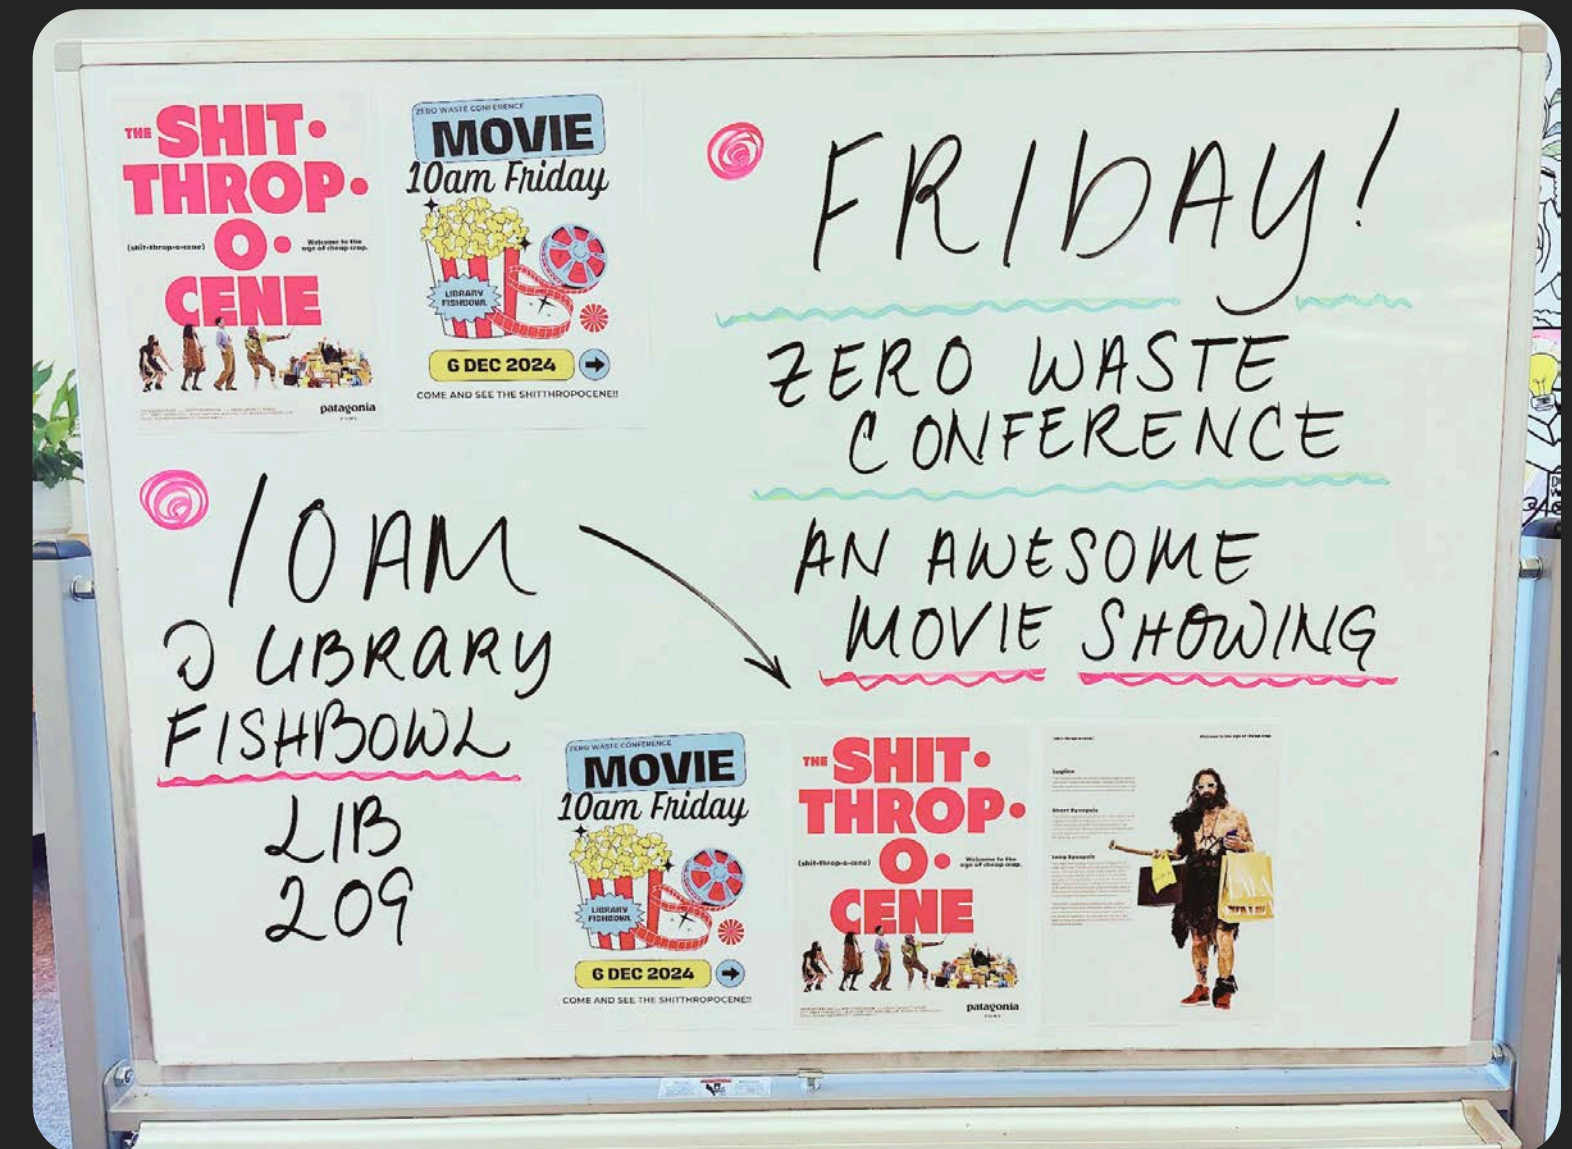 THE SHIT•
THROP•
(shit•throp•o•cene) O• Welcome to the
age of cheap crap.
CENE
patagonia
FILMS
ZERO WASTE CONFERENCE
MOVIE
10am Friday
LIBRARY
FISHBOWL
6 DEC 2024
COME AND SEE THE SHITTHROPOCENE!!
FRIDAY!
ZERO WASTE
CONFERENCE
AN AWESOME
MOVIE SHOWING
10AM
@ LIBRARY
FISHBOWL
LIB
209
ZERO WASTE CONFERENCE
MOVIE
10am Friday
LIBRARY
FISHBOWL
6 DEC 2024
COME AND SEE THE SHITTHROPOCENE!!
THE SHIT•
THROP•
(shit•throp•o•cene) O• Welcome to the
age of cheap crap.
CENE
patagonia
FILMS
(shit•throp•o•cene) Welcome to the age of cheap crap.
Logline
Short Synopsis
Long Synopsis